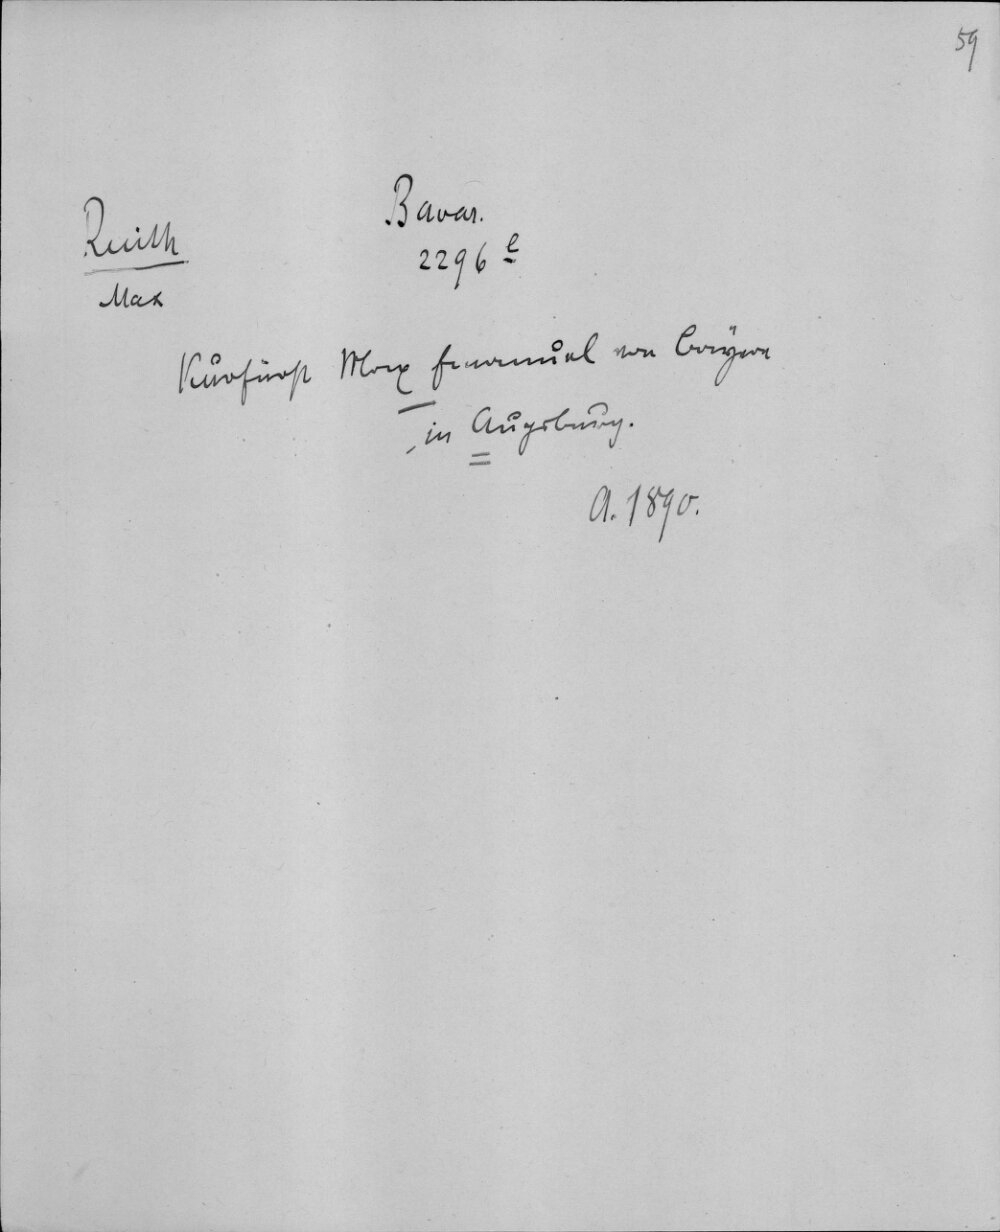 59
Bavar.
2296 e
Reuith
Max
Kurfürst Max Emanuel von Bayern
in Augsburg.
A. 1890.